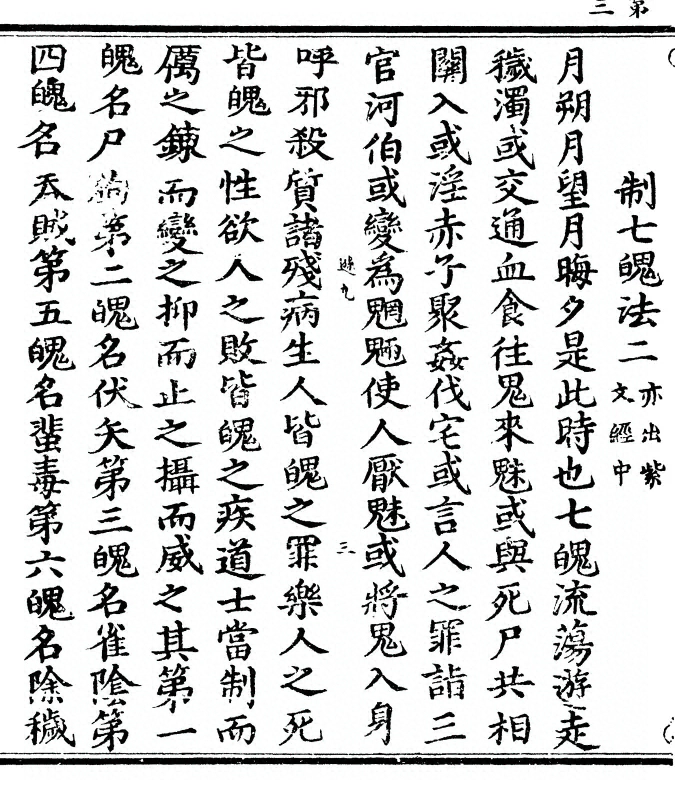 第三
制七魄法二亦出紫文經中
月朔月望月晦夕是此時也七魄流蕩遊走
穢濁或交通血食往鬼來魅或與死尸共相
關入或淫赤子聚姦伐宅或言人之罪詣三
官河伯或變為魍魎使人厭魅或將鬼入身
遊九
三
呼邪殺質諸殘病生人皆魄之罪樂人之死
皆魄之性欲人之敗皆魄之疾道士當制而
厲之鍊而變之抑而止之攝而威之其第一
魄名尸狗第二魄名伏矢第三魄名雀陰第
四魄名吞賊第五魄名蜚毒第六魄名除穢